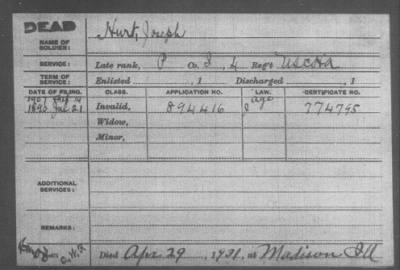 DEAD
NAME OF SOLDIER:
Hurt, Joseph
SERVICE:
Late rank, P Co. I, 4 Reg't USCHA
TERM OF SERVICE:
Enlisted , 1 Discharged , 1
DATE OF FILING. CLASS. APPLICATION NO. LAW. CERTIFICATE NO.
1907
1890 Jul 21 Invalid, 894416 age 774795
Widow,
Minor,
ADDITIONAL SERVICES:
REMARKS:
Died Apr. 29, 1921, at Madison Ill